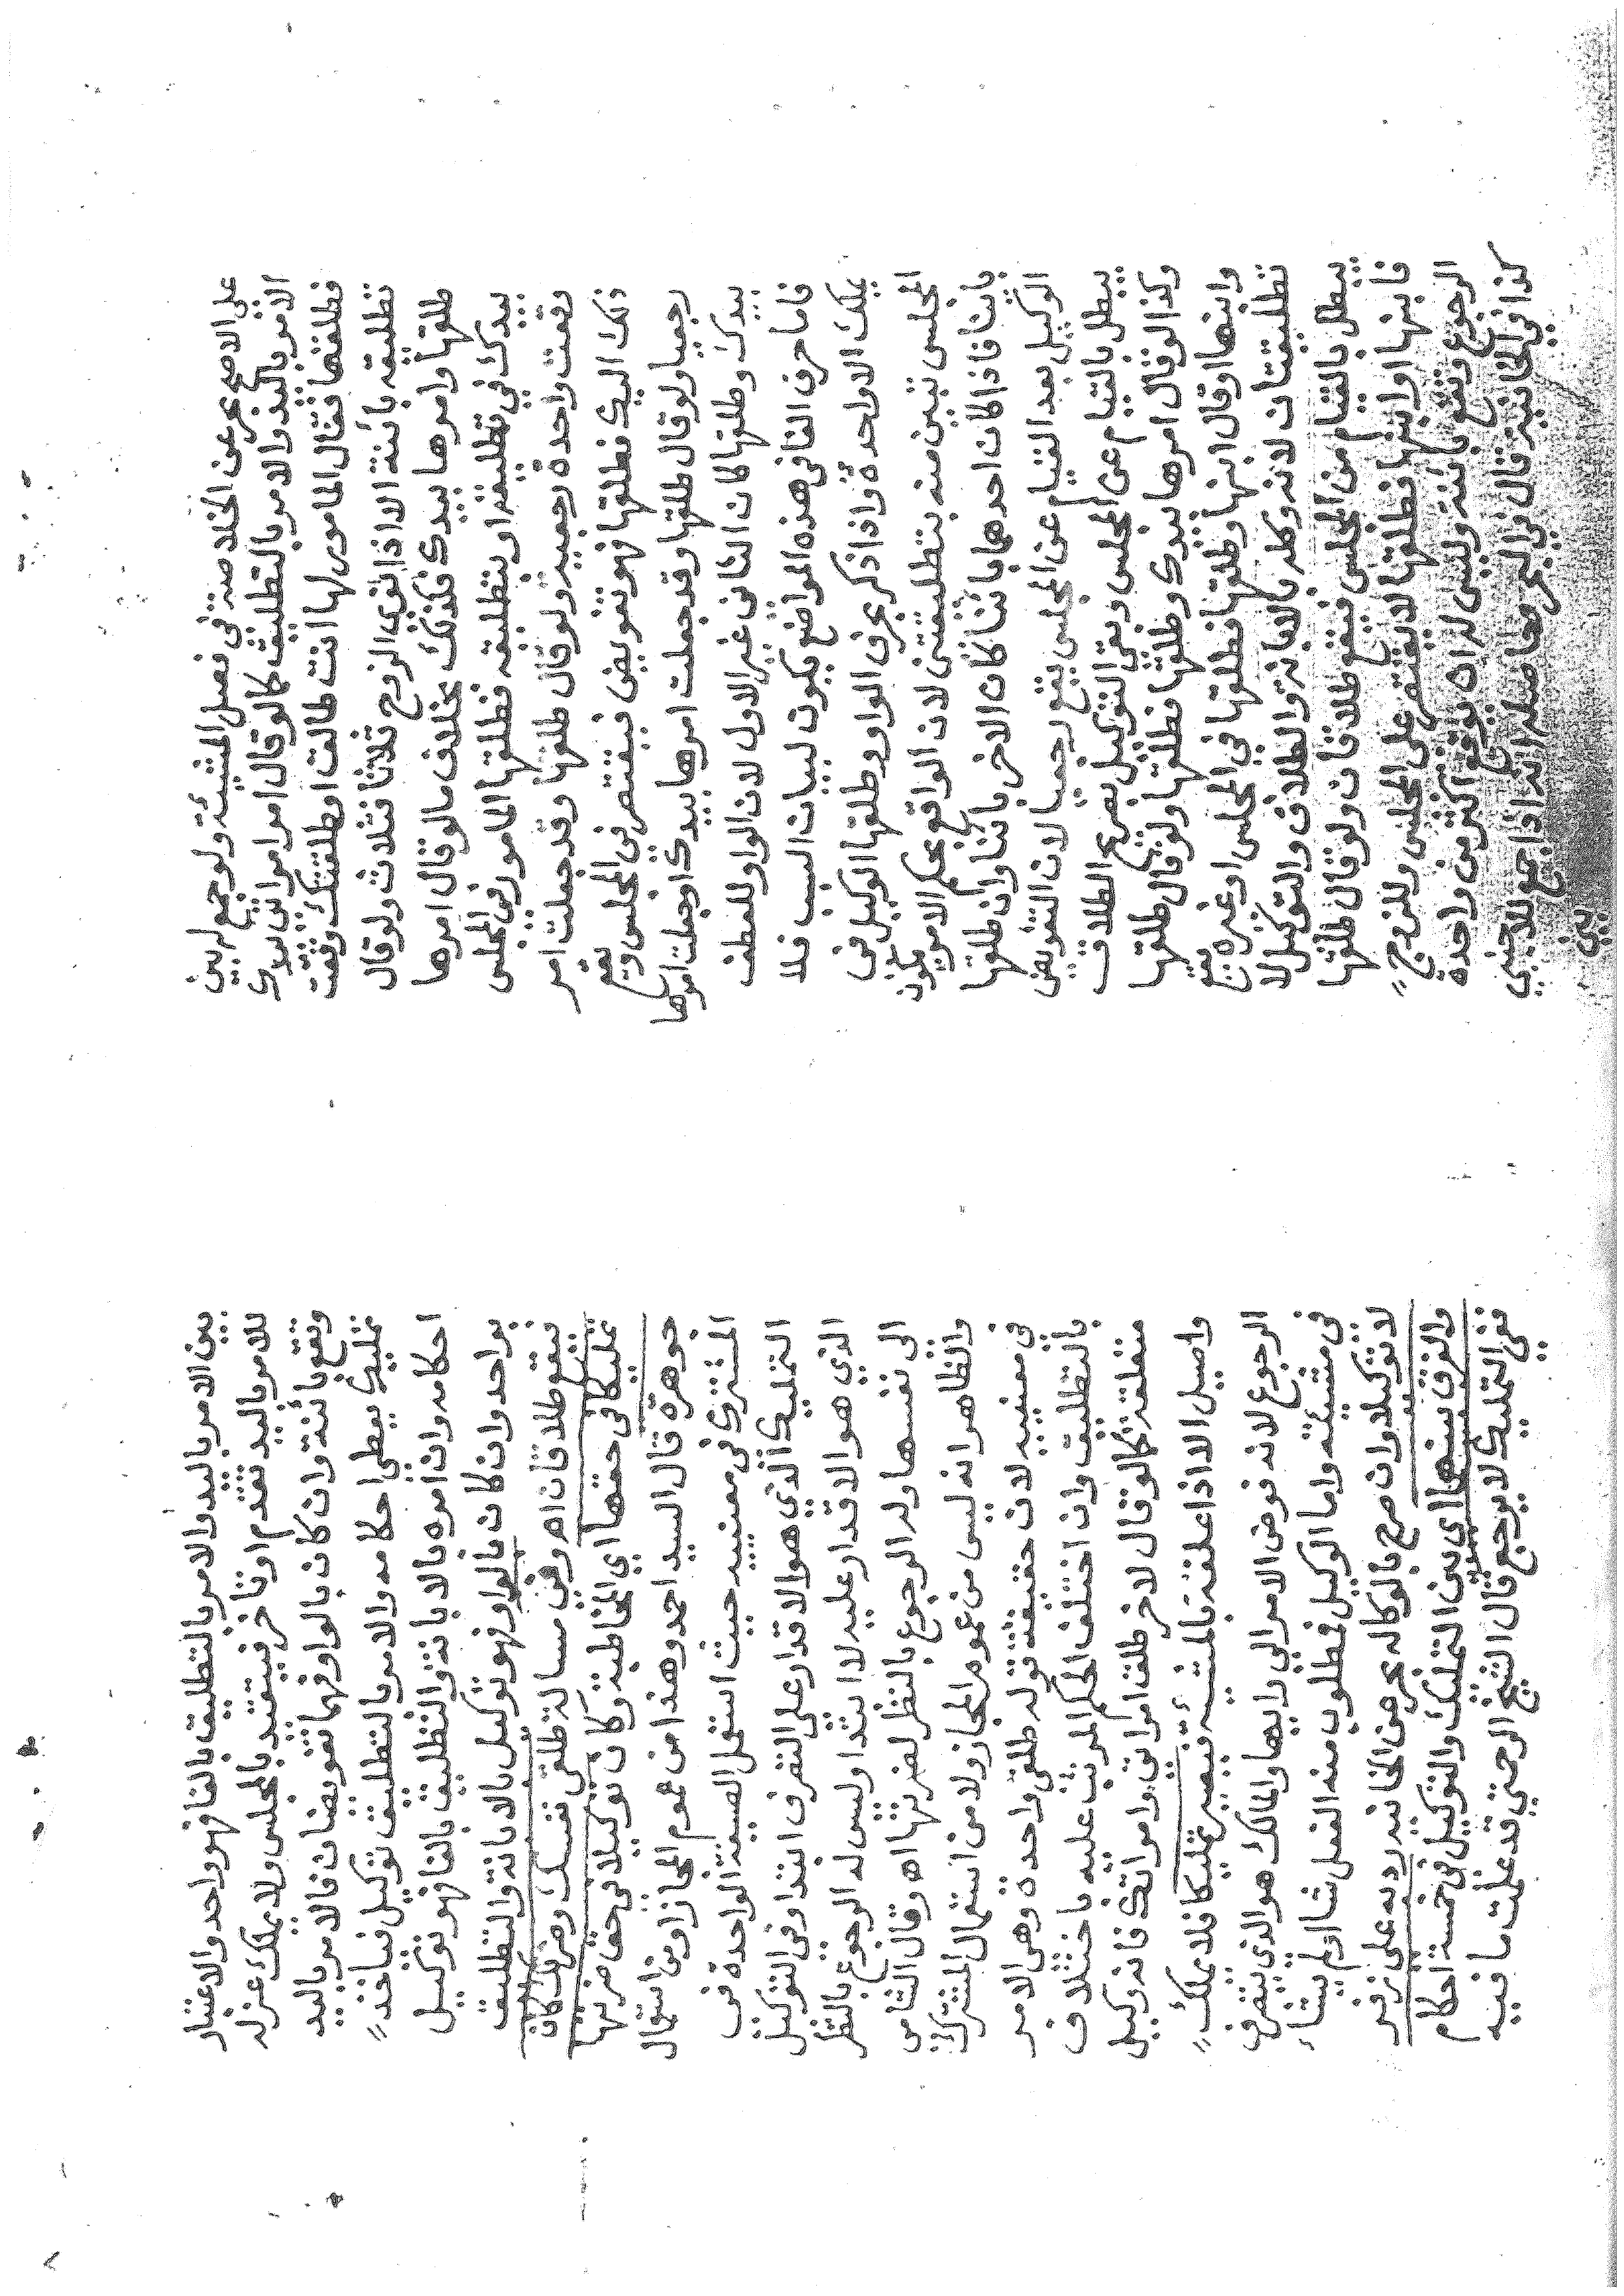 على الاصح بحر عن الخلاصة في فصل المشيئة ولو جمع له بين
الامر باليد والامر بالتطليق كما لو قال امر امراتي بيدك
فطلقها فقال المامور لها انت طالق او طلقتك وقعت
تطليقة بائنة الا اذا نوى الزوج ثلاثا فثلاث ولو قال
طلقها وامرها بيدك فكذلك بخلاف ما لو قال امرها
بيدك في تطليقة او بتطليقة فطلقها المامور في المجلس
وقعت واحدة رجعية ولو قال طلقها وقد جعلت امر
ذلك اليك فطلقها فهو تفويض فيقتصر في المجلس ويقع
رجعيا ولو قال طلقها وقد جعلت امرها بيدك او جعلت امرها
بيدك وطلقها كان الثاني غير الاول لان الواو للعطف
فاما حرف الفا في هذه المواضع يكون لبيان السبب فلا
يملك الا واحدة واذا ذكر بحرف الواو وطلقها الوكيل في
المجلس تبين منه بتطليقتين لان الواقع بحكم الامر يكون
بائنا فاذا كان احدهما بائنا كان الاخر بائنا وان طلقها
الوكيل بعد القيام عن المجلس يقع رجعيا لان التفويض
يبطل بالقيام عن المجلس وبقي التوكيل بصريح الطلاق
وكذا لو قال امرها بيدك وطلقها فطلقها ولو قال طلقها
وابنها او قال ابنها وطلقها فطلقها في المجلس او غيره يقع
تطليقتان لانه وكله بالابانة والطلاق والتوكيل لا
يبطل بالقيام من المجلس فتقع طلاقان ولو قال طلقها
فابنها او ابنها فطلقها لا يقتصر على المجلس وللزوج
الرجوع وتقع بائنة وليس له ان يوقع اكثر من واحدة
كذا في الخانية قال في البحر وحاصله انه اذا جمع للاجنبي
بين
بين الامر باليد والامر بالتطليق بالفا فهو واحد والاعتبار
للامر باليد تقدم او تاخر فيتقيد بالمجلس ولا يملك عزله
وتقع بائنة وان كان بالواو فهما تفويضان فالامر باليد
تمليك يعطى احكامه والامر بالتطليق توكيل فياخذ
احكامه وان امره بالابانة والتطليق بالفا فهو توكيل
بواحد وان كان بالواو فهو توكيل بالابانة والتطليق
فيقع طلاقان اه وفي مسالة طلقي نفسك وضرتك كان
تمليكا في حقها اي المخاطبة وكان توكيلا في حق ضرتها
جوهرة قال السيد احمد وهذا من عموم المجاز او من استعمال
المشترك في معنييه حيث استعمل الصيغة الواحدة في
التمليك الذي هو الاقدار على التصرف ابتدا وفي التوكيل
الذي هو الاقدار عليه لا ابتدا وليس له الرجوع بالنظر
الى نفسها وله الرجوع بالنظر لضرتها اه وقال الشامي
والظاهر انه ليس من عموم المجاز ولا من استعمال المشترك
في معنييه لان حقيقة قوله طلقي واحدة وهي الامر
بالتطليق وان اختلف الحكم المرتب عليه باختلاف
متعلقه كما لو قال لاخر طلق امراتي وامراتك فانه وكيل
واصيل الا اذا علقه بالمشيئة فيصير تمليكا فلا يملك
الرجوع لانه فوض الامر الى رايها والمالك هو الذي يتصرف
في مشيئته واما الوكيل فمطلوب منه الفعل شا او لم يشا
لا توكيلا وان صرح بالوكالة بحر عن الخانية رد به على زفر
والفرق بينهما اي بين التمليك والتوكيل في خمسة احكام
ففي التمليك لا يرجع قال الشيخ الرحمتي قد علمت ما فيه